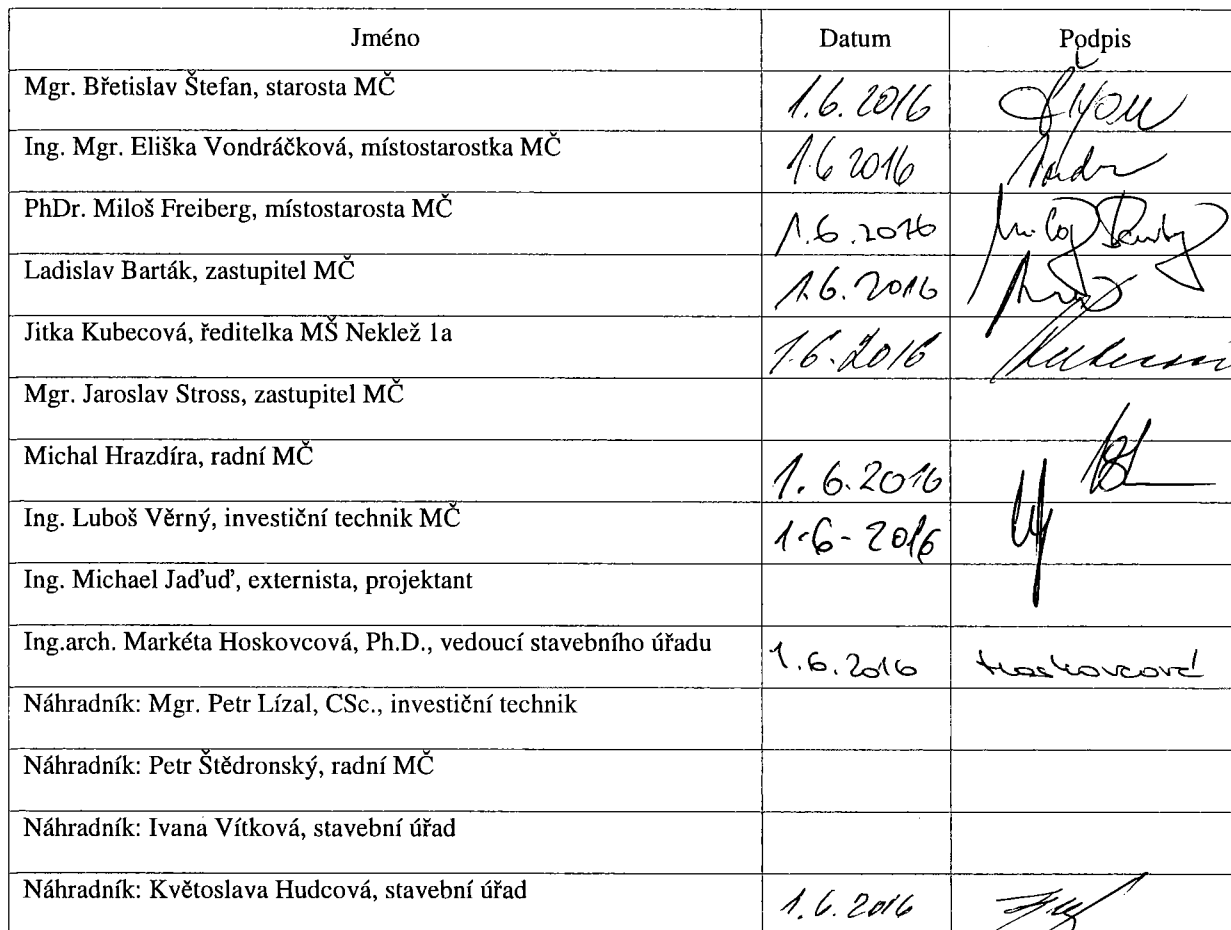 Jméno Datum Podpis
Mgr. Břetislav Štefan, starosta MČ 1.6.2016
Ing. Mgr. Eliška Vondráčková, místostarostka MČ 1.6 2016
PhDr. Miloš Freiberg, místostarosta MČ 1.6.2016
Ladislav Barták, zastupitel MČ 1.6.2016
Jitka Kubecová, ředitelka MŠ Neklež 1a 1.6.2016
Mgr. Jaroslav Stross, zastupitel MČ
Michal Hrazdíra, radní MČ 1.6.2016
Ing. Luboš Věrný, investiční technik MČ 1-6-2016
Ing. Michael Jaďuď, externista, projektant
Ing.arch. Markéta Hoskovcová, Ph.D., vedoucí stavebního úřadu 1.6.2016 Hoskovcová
Náhradník: Mgr. Petr Lízal, CSc., investiční technik
Náhradník: Petr Štědronský, radní MČ
Náhradník: Ivana Vítková, stavební úřad
Náhradník: Květoslava Hudcová, stavební úřad 1.6.2016